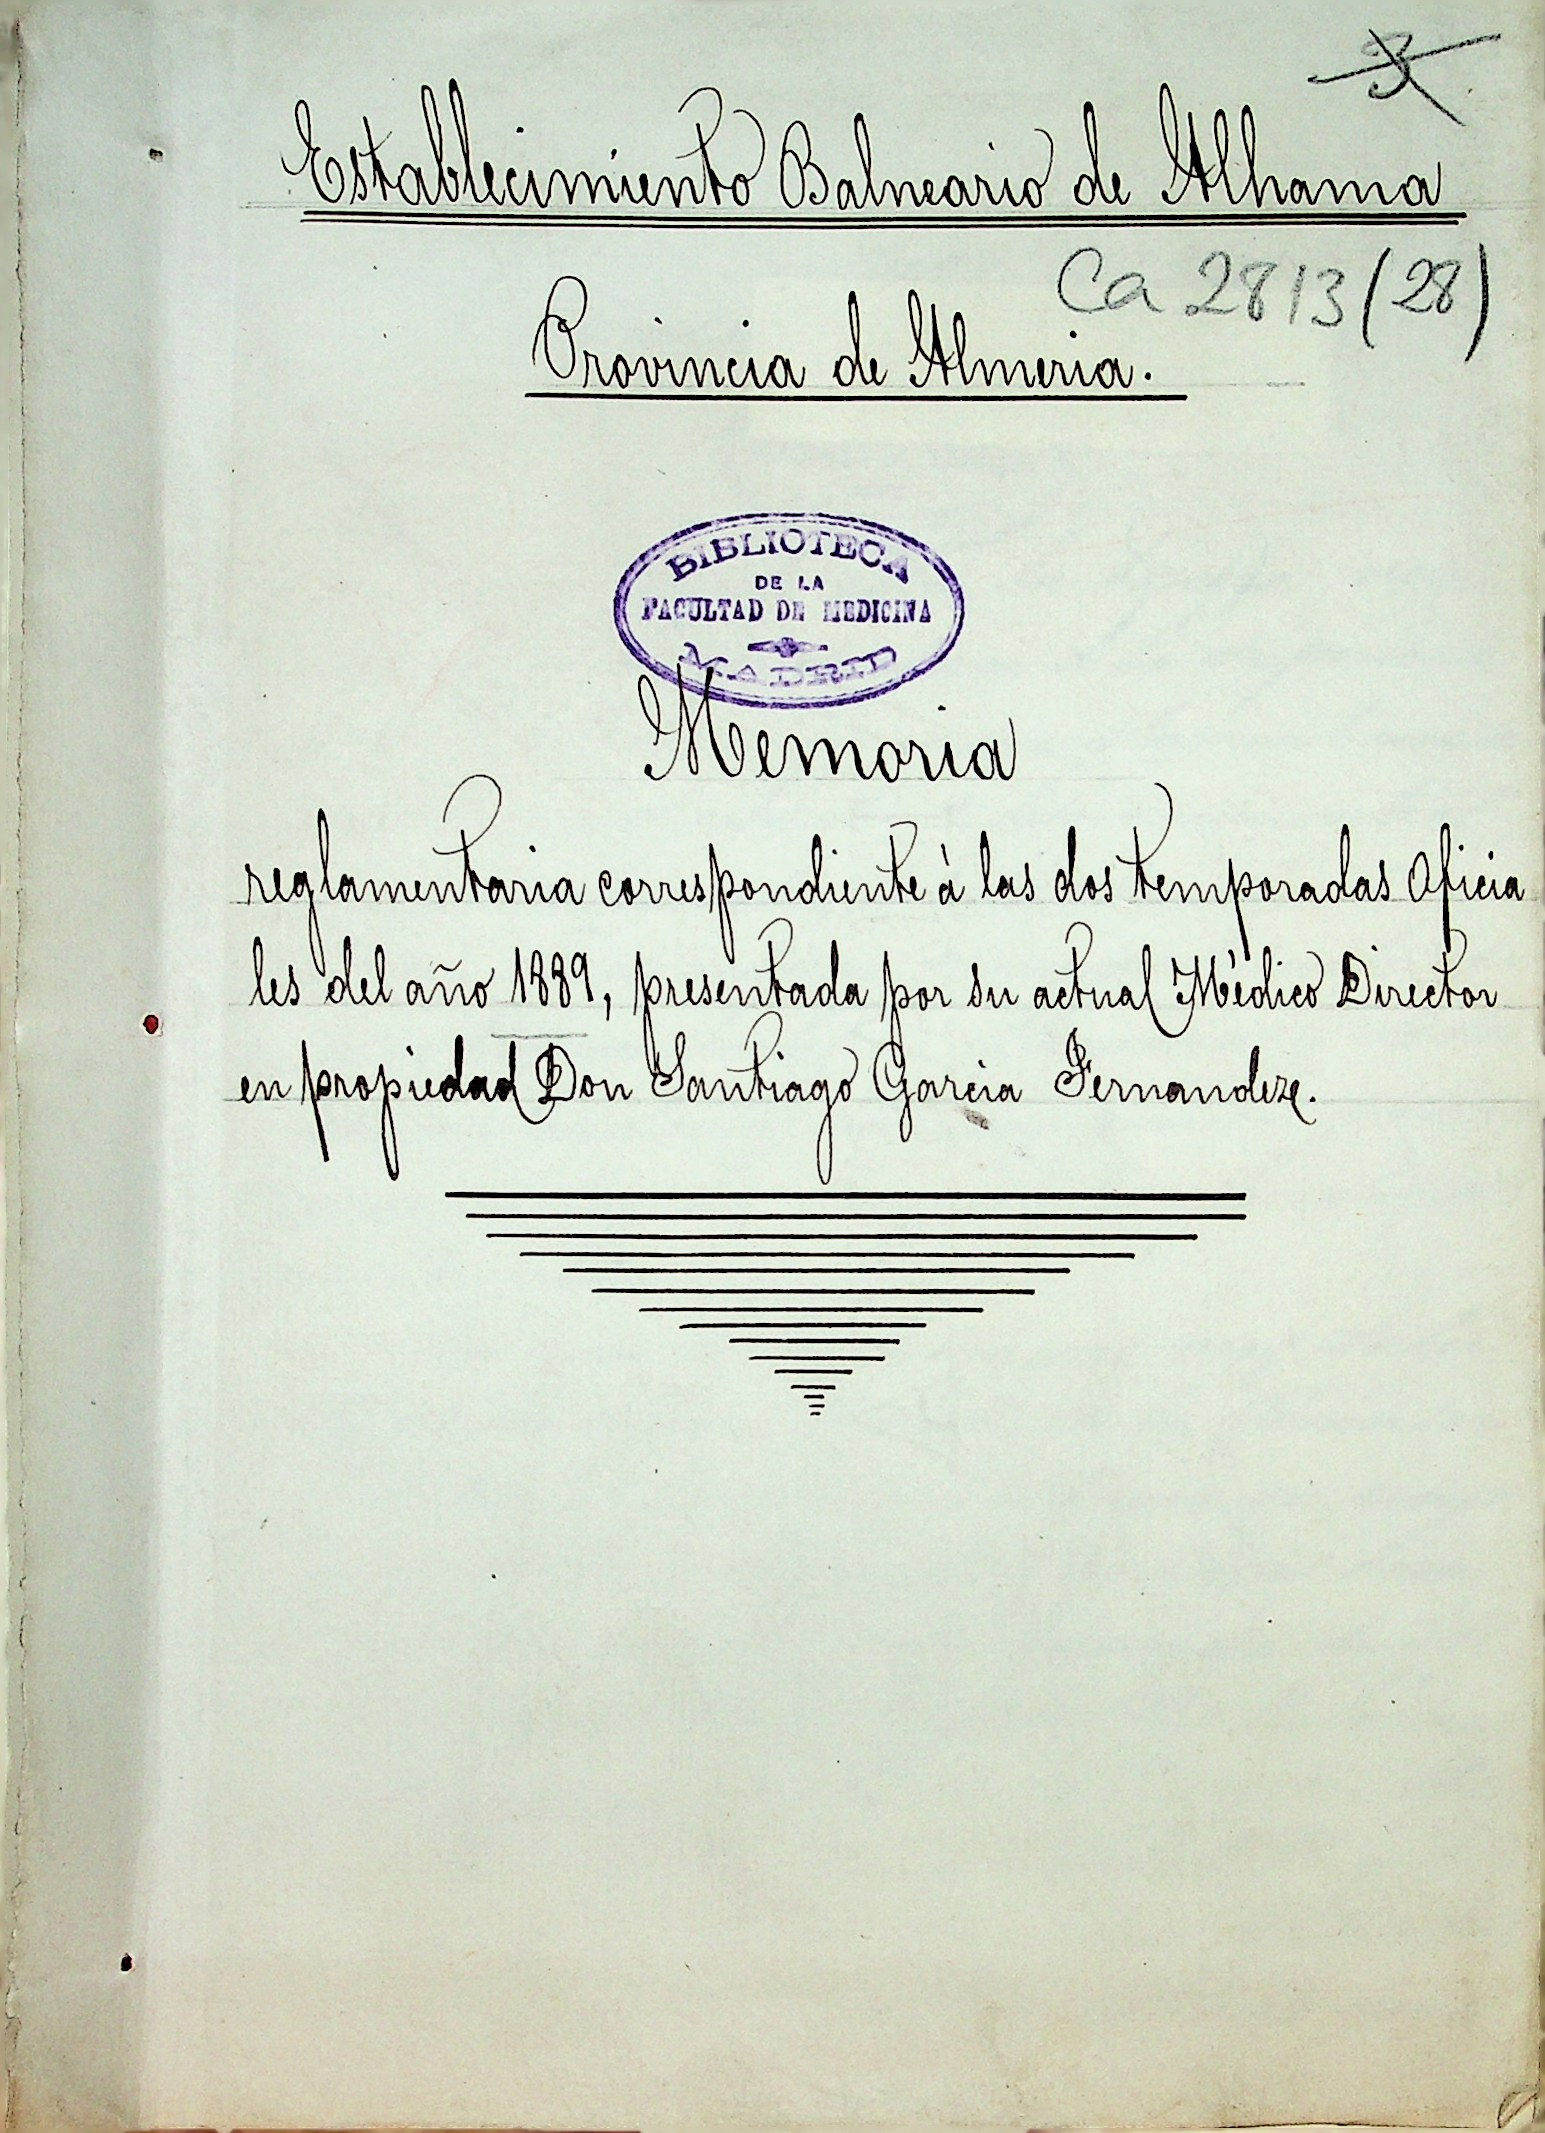 3
Establecimiento Balneario de Alhama
Ca 2813 (28)
Provincia de Almeria.
BIBLIOTECA
DE LA
FACULTAD DE MEDICINA
MADRID
Memoria
reglamentaria correspondiente à las dos temporadas oficia
les del año 1889, presentada por su actual Mèdico Director
en propiedad Don Santiago Garcia Fernandez.